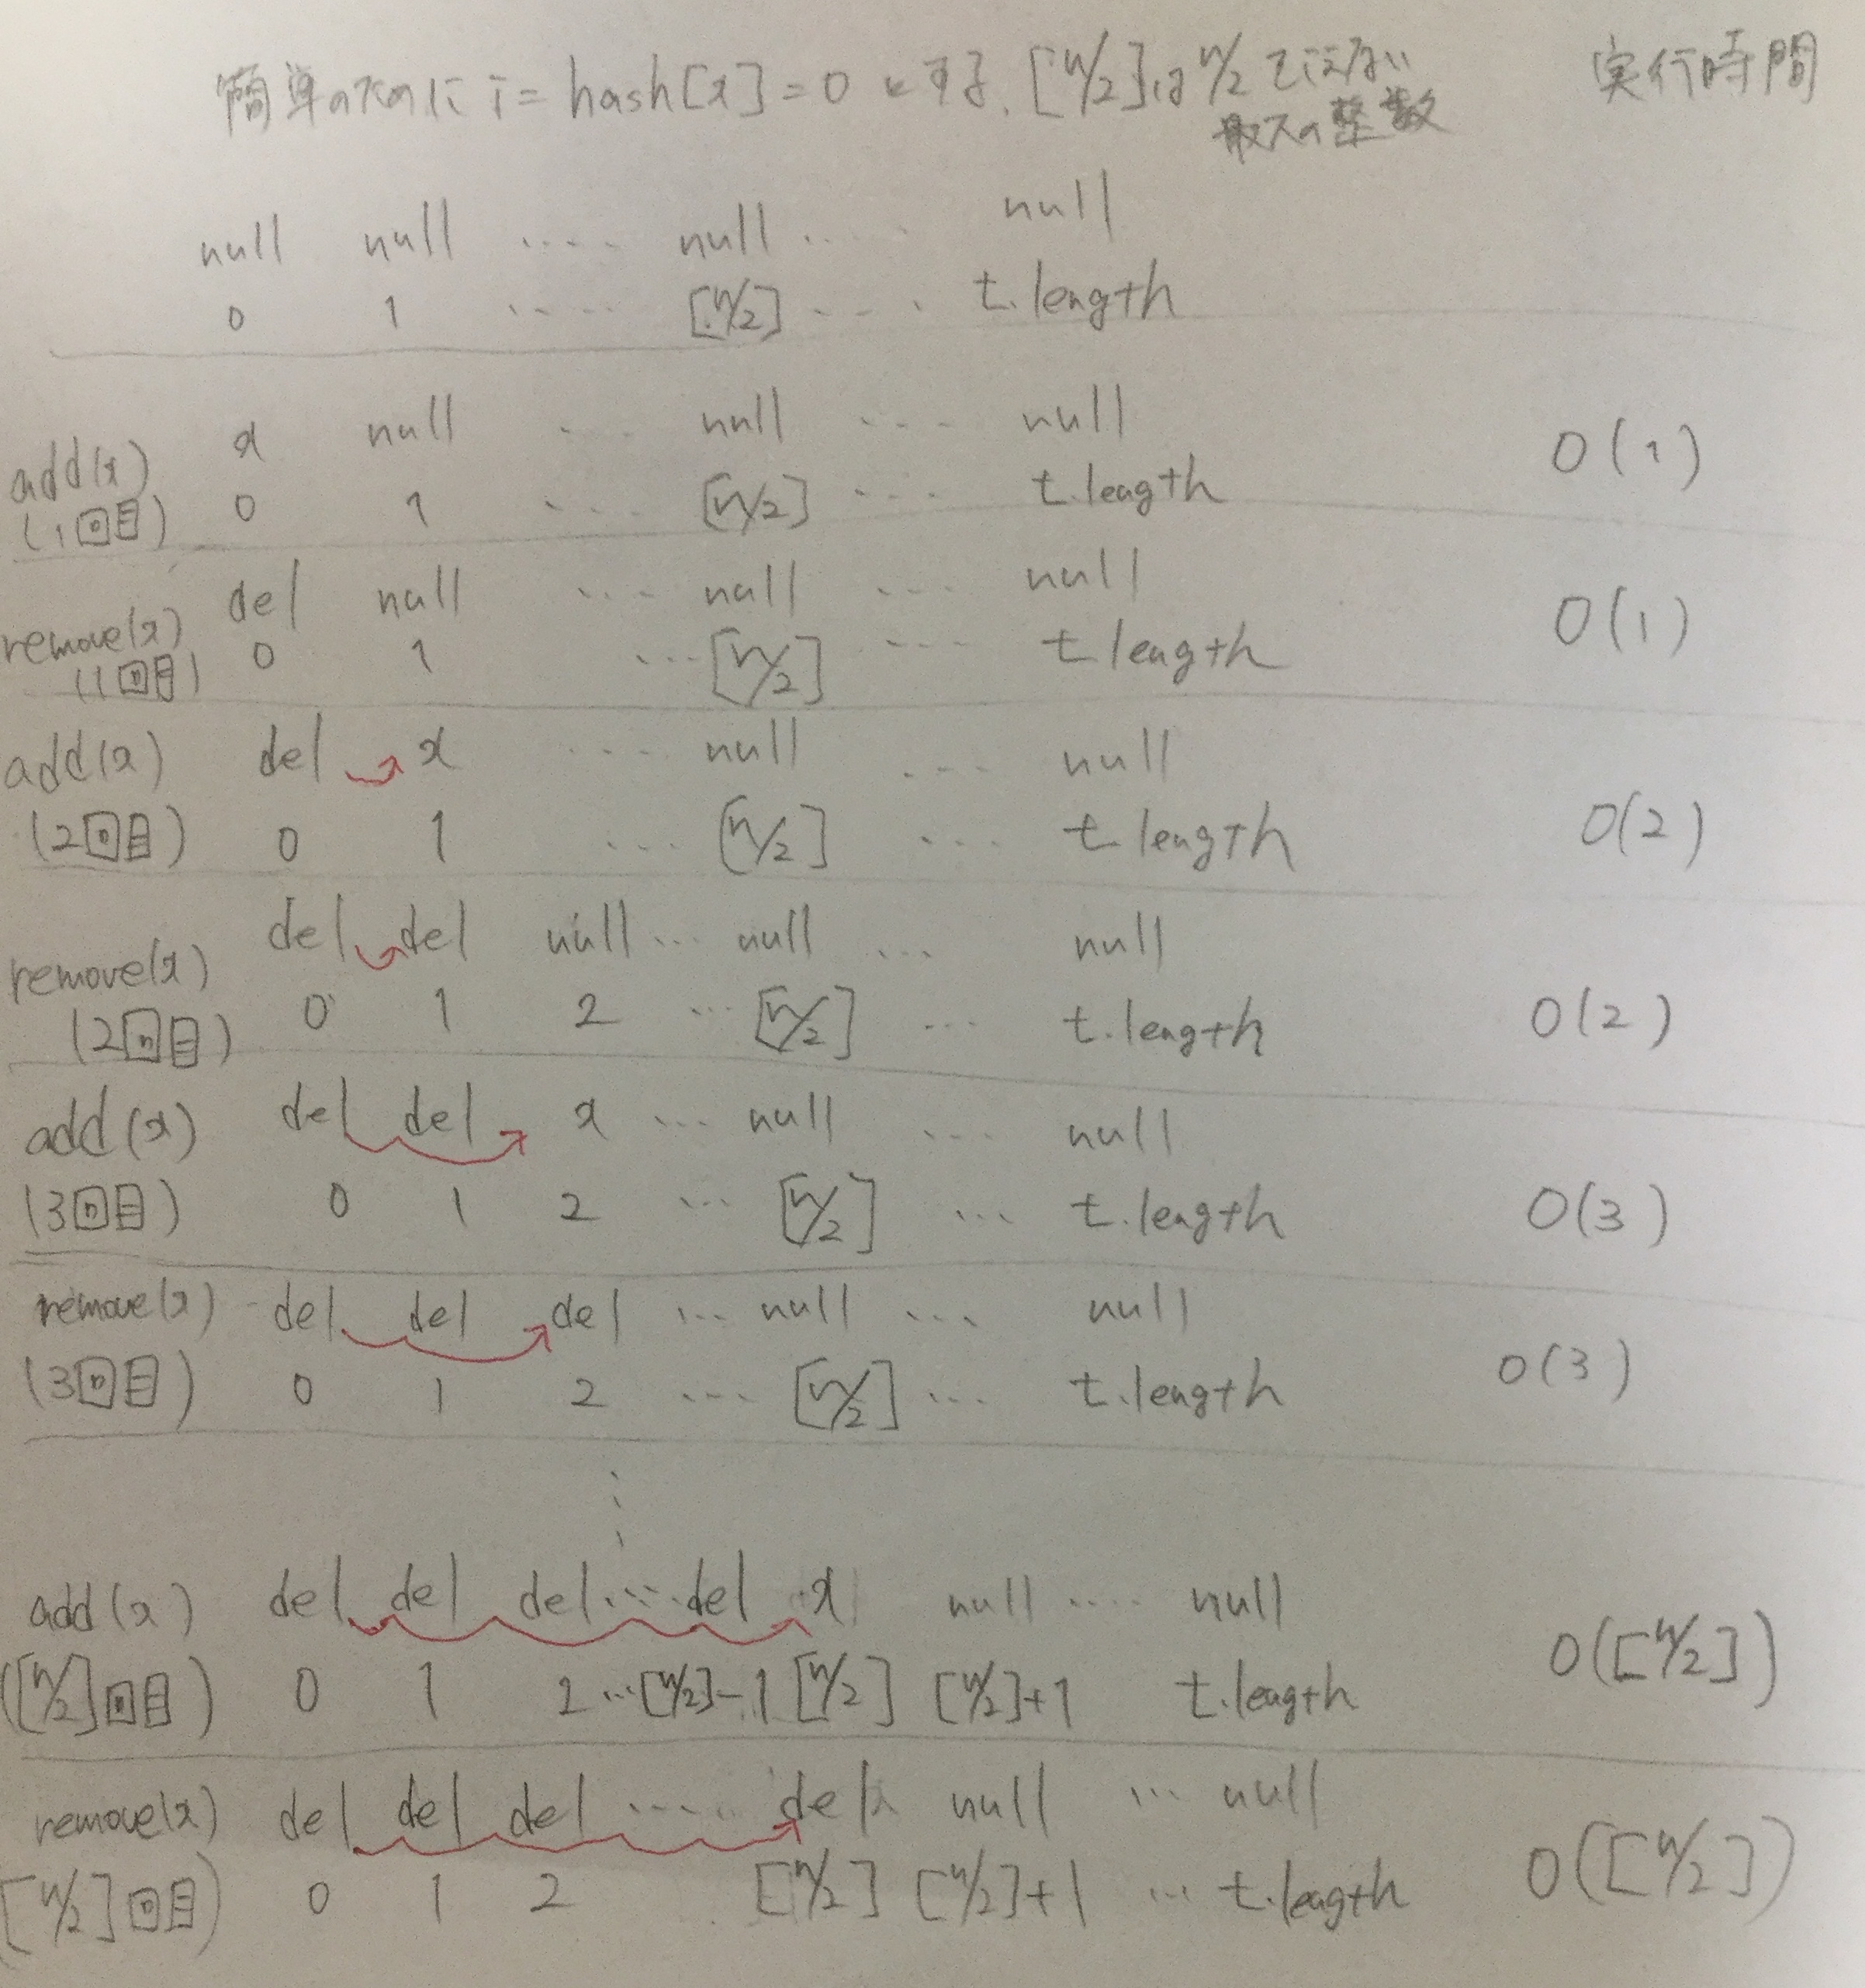 簡単のために i = hash[x] = 0 とする. [n/2]は n/2 でこえない 実行時間
最大の整数
null null .... null .... null
0 1 .... [n/2] .... t.length
add(x) x null ... null ... null O(1)
(1回目) 0 1 .... [n/2] ... t.length
remove(x) del null ... null ... null O(1)
(1回目) 0 1 ... [n/2] ... t length
add(x) del x ... null ... null
(2回目) 0 1 ... [n/2] ... t length O(2)
remove(x) del del null ... null ... null
(2回目) 0 1 2 ... [n/2] ... t.length O(2)
add(x) del del x ... null ... null
(3回目) 0 1 2 ... [n/2] ... t.length O(3)
remove(x) del del del ... null ... null
(3回目) 0 1 2 ... [n/2] ... t.length O(3)
⋮
add(x) del del del ... del x null .... null
([n/2]回目) 0 1 2 ... [n/2]-1 [n/2] [n/2]+1 t.length O([n/2])
remove(x) del del del .... del null ... null
[n/2]回目) 0 1 2 [n/2] [n/2]+1 ... t.length O([n/2])